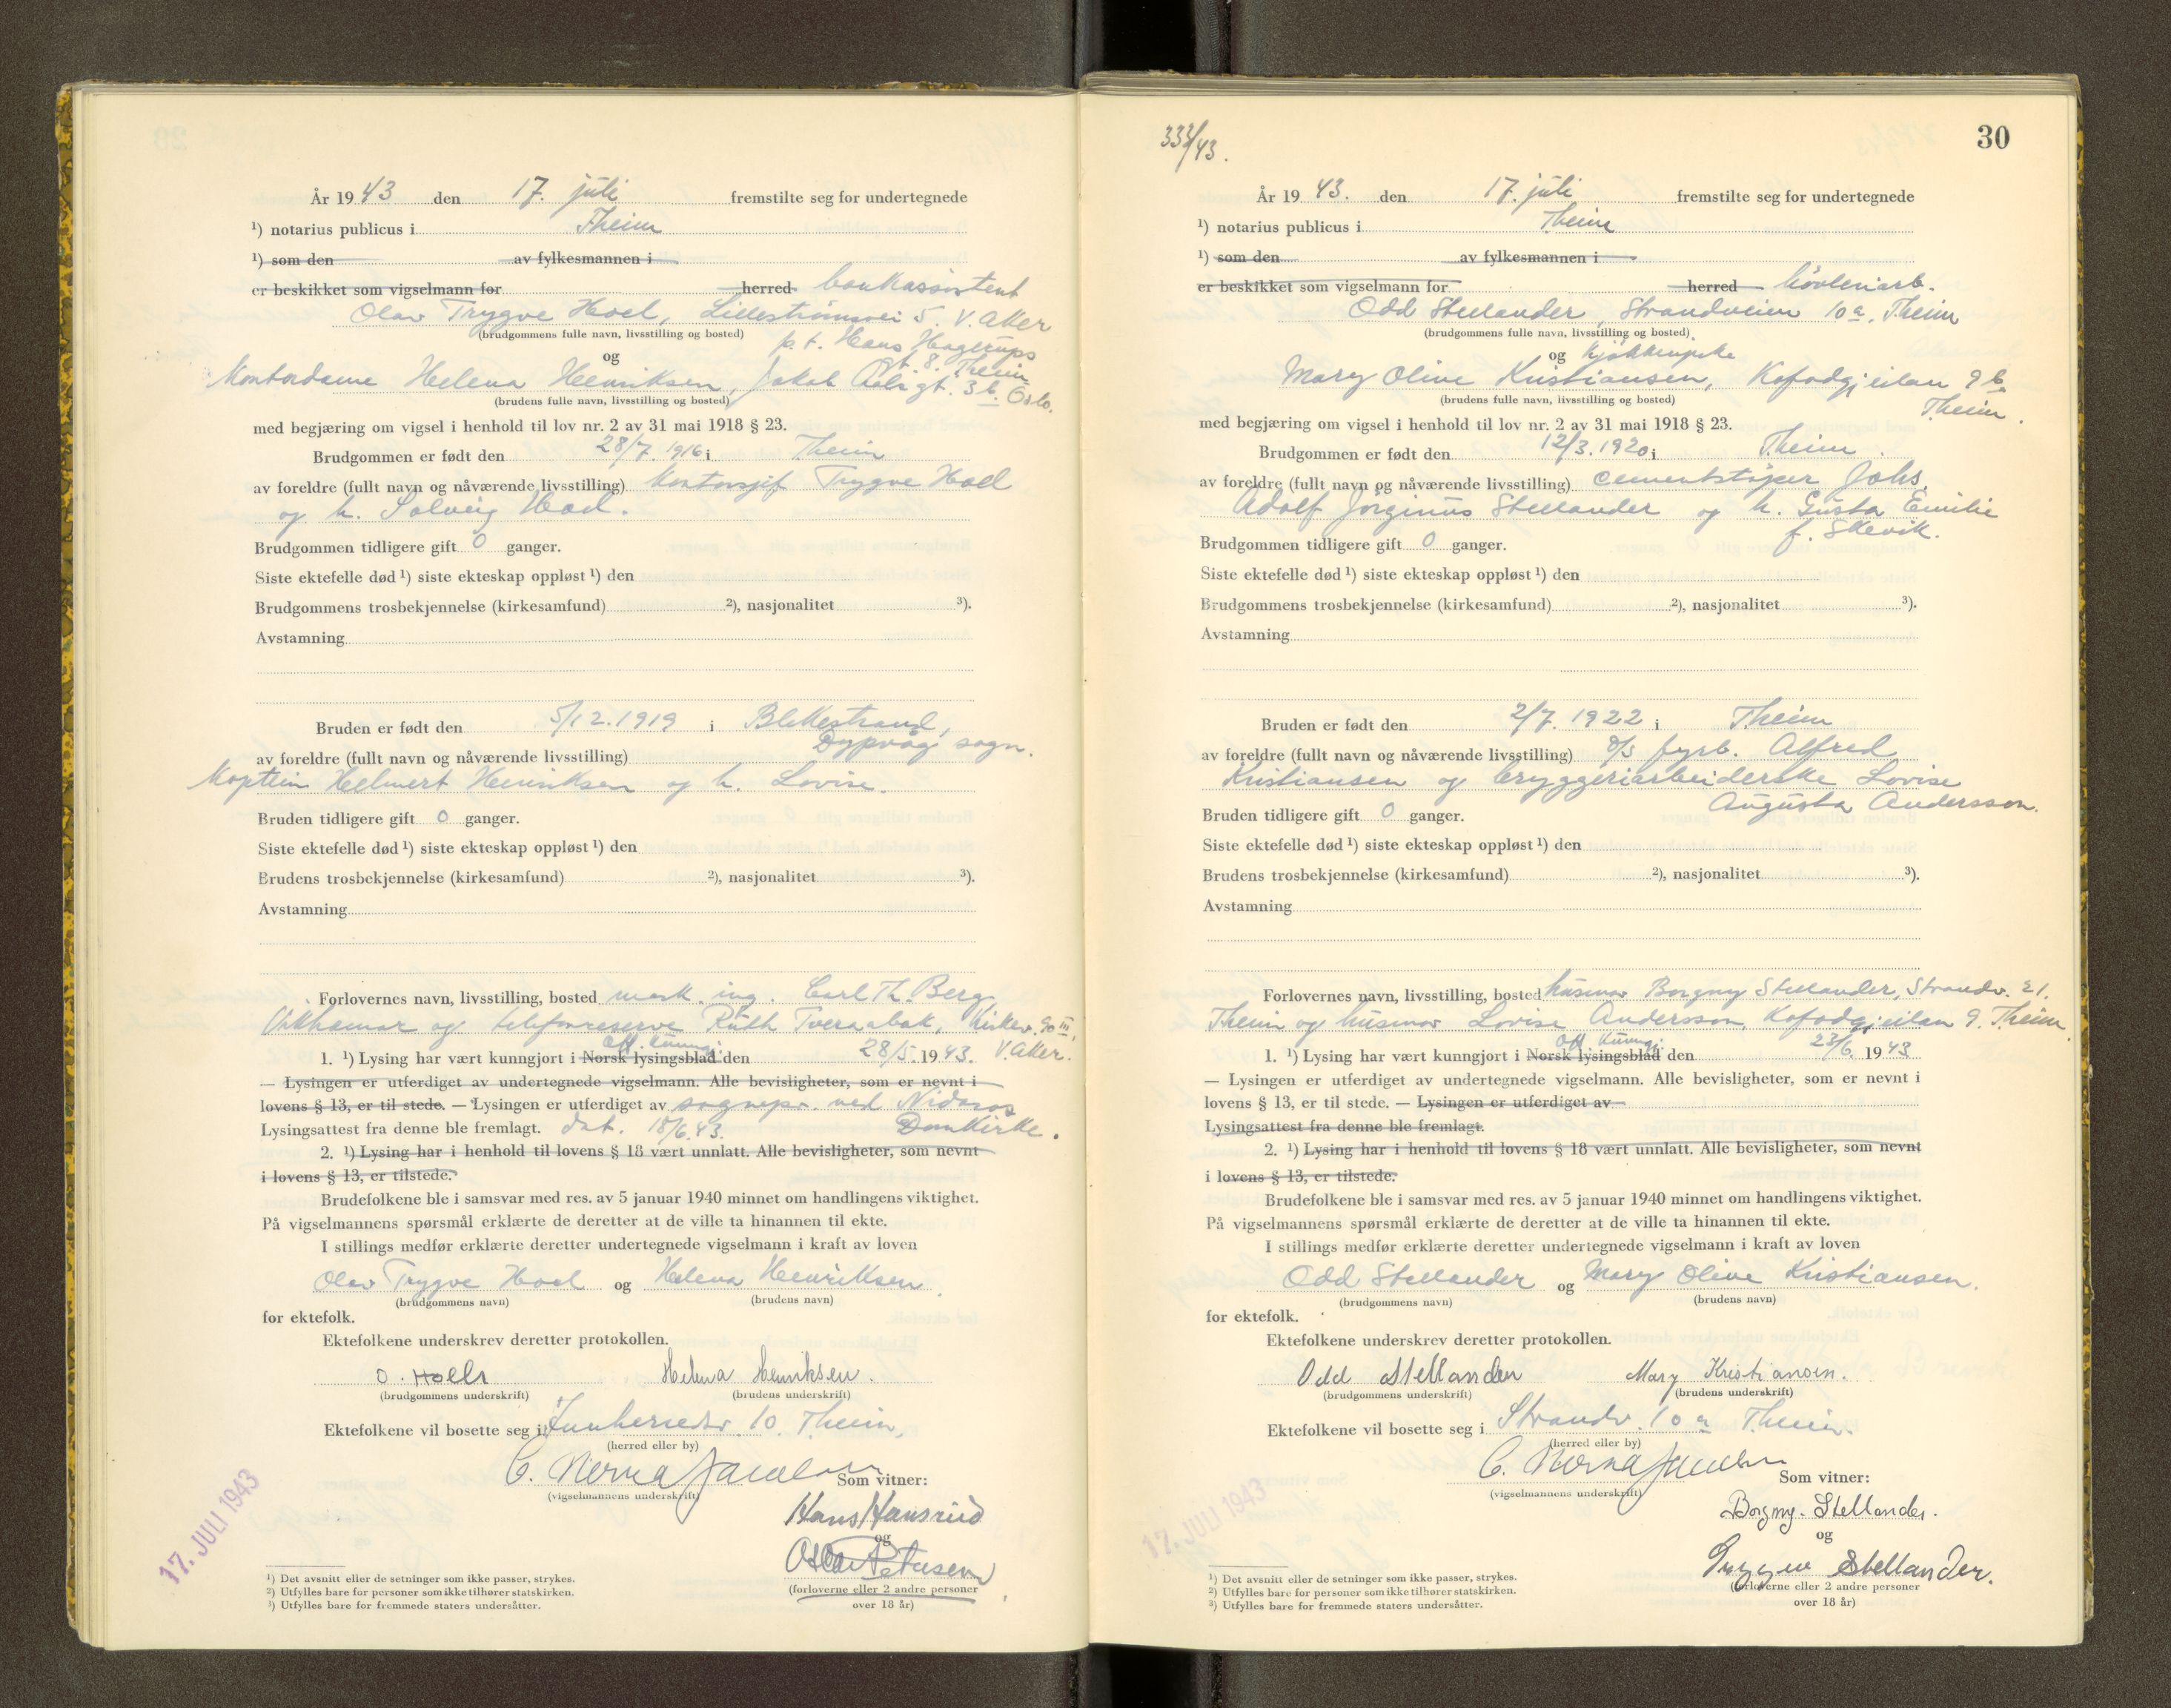 År 1943 den 17. juli fremstilte seg for undertegnede
¹) notarius publicus i Theim
¹) som den av fylkesmannen i
er beskikket som vigselmann for herred bankassistent
Olav Trygve Hoel, Lillestrømvei 5. V. Aker
(brudgommens fulle navn, livsstilling og bosted) p. t. Hans Hagerups
og gt. 8. Theim
Kontordame Helena Henriksen, Jakob Aalsgt. 3 b. Oslo.
(brudens fulle navn, livsstilling og bosted)
med begjæring om vigsel i henhold til lov nr. 2 av 31 mai 1918 § 23.
Brudgommen er født den 28/7. 1916 i Theim
av foreldre (fullt navn og nåværende livsstilling) Kontorsjef Trygve Hoel
og h. Solveig Hoel.
Brudgommen tidligere gift 0 ganger.
Siste ektefelle død ¹) siste ekteskap oppløst ¹) den
Brudgommens trosbekjennelse (kirkesamfund) ²), nasjonalitet ³).
Avstamning
Bruden er født den 5/12. 1919 i Blekestrand,
Dypvåg sogn.
av foreldre (fullt navn og nåværende livsstilling)
Kaptein Helmert Henriksen og h. Lovise.
Bruden tidligere gift 0 ganger.
Siste ektefelle død ¹) siste ekteskap oppløst ¹) den
Brudens trosbekjennelse (kirkesamfund) ²), nasjonalitet ³).
Avstamning
Forlovernes navn, livsstilling, bosted mask. ing. Carl Th. Berg,
Vikhamar og telefonreserve Ruth Tveraabak, Kirkev. 90 III,
V. Aker.
off. kunngj.
1. ¹) Lysing har vært kunngjort i Norsk lysingsblad den 28/5. 1943.
— Lysingen er utferdiget av undertegnede vigselmann. Alle bevisligheter, som er nevnt i
lovens § 13, er til stede. — Lysingen er utferdiget av sognepr. ved Nidaros
Lysingsattest fra denne ble fremlagt. dat. 18/6. 43. Domkirke.
2. ¹) Lysing har i henhold til lovens § 18 vært unnlatt. Alle bevisligheter, som nevnt
i lovens § 13, er tilstede.
Brudefolkene ble i samsvar med res. av 5 januar 1940 minnet om handlingens viktighet.
På vigselmannens spørsmål erklærte de deretter at de ville ta hinannen til ekte.
I stillings medfør erklærte deretter undertegnede vigselmann i kraft av loven
Olav Trygve Hoel og Helena Henriksen
(brudgommens navn) (brudens navn)
for ektefolk.
Ektefolkene underskrev deretter protokollen.
O. Hoell Helena Henriksen.
(brudgommens underskrift) (brudens underskrift)
Ektefolkene vil bosette seg i Innherredsv. 10. Theim,
(herred eller by)
C. Mørna Jacobsen Som vitner:
(vigselmannens underskrift)
Hans Hansrud
og
Oscar Petersen
(forloverne eller 2 andre personer
over 18 år)
17. JULI 1943
¹) Det avsnitt eller de setninger som ikke passer, strykes.
²) Utfylles bare for personer som ikke tilhører statskirken.
³) Utfylles bare for fremmede staters undersåtter.
333/43.
30
År 1943. den 17. juli fremstilte seg for undertegnede
¹) notarius publicus i Theim
¹) som den av fylkesmannen i
er beskikket som vigselmann for herred høvleriarb.
Odd Stellander, Strandveien 10 a, Theim
(brudgommens fulle navn, livsstilling og bosted)
og kjøkkenpike
Mary Olive Kristiansen, Kofodgjeilan 9 b
Theim.
(brudens fulle navn, livsstilling og bosted)
med begjæring om vigsel i henhold til lov nr. 2 av 31 mai 1918 § 23.
Brudgommen er født den 12/3. 1920 i Theim.
av foreldre (fullt navn og nåværende livsstilling) cementstøper Johs.
Adolf Jørginus Stellander og h. Gusta Emilie
f. Skevik.
Brudgommen tidligere gift 0 ganger.
Siste ektefelle død ¹) siste ekteskap oppløst ¹) den
Brudgommens trosbekjennelse (kirkesamfund) ²), nasjonalitet ³).
Avstamning
Bruden er født den 2/7. 1922 i Theim
av foreldre (fullt navn og nåværende livsstilling) d/s fyrb. Alfred
Kristiansen og bryggeriarbeiderske Lovise
Augusta Andersson.
Bruden tidligere gift 0 ganger.
Siste ektefelle død ¹) siste ekteskap oppløst ¹) den
Brudens trosbekjennelse (kirkesamfund) ²), nasjonalitet ³).
Avstamning
Forlovernes navn, livsstilling, bosted husmor Borgny Stellander, Strandv. 21.
Theim og husmor Lovise Andersson, Kofodgjeilan 9. Theim.
off. kunngj.
1. ¹) Lysing har vært kunngjort i Norsk lysingsblad den 23/6. 1943
— Lysingen er utferdiget av undertegnede vigselmann. Alle bevisligheter, som er nevnt i
lovens § 13, er til stede. — Lysingen er utferdiget av
Lysingsattest fra denne ble fremlagt.
2. ¹) Lysing har i henhold til lovens § 18 vært unnlatt. Alle bevisligheter, som nevnt
i lovens § 13, er tilstede.
Brudefolkene ble i samsvar med res. av 5 januar 1940 minnet om handlingens viktighet.
På vigselmannens spørsmål erklærte de deretter at de ville ta hinannen til ekte.
I stillings medfør erklærte deretter undertegnede vigselmann i kraft av loven
Odd Stellander og Mary Olive Kristiansen.
(brudgommens navn) (brudens navn)
for ektefolk.
Ektefolkene underskrev deretter protokollen.
Odd Stellander Mary Kristiansen.
(brudgommens underskrift) (brudens underskrift)
Ektefolkene vil bosette seg i Strandv. 10 a Theim.
(herred eller by)
C. Mørna Jacobsen Som vitner:
(vigselmannens underskrift)
Borgny. Stellander.
og
Stellander.
(forloverne eller 2 andre personer
over 18 år)
17. JULI 1943
¹) Det avsnitt eller de setninger som ikke passer, strykes.
²) Utfylles bare for personer som ikke tilhører statskirken.
³) Utfylles bare for fremmede staters undersåtter.